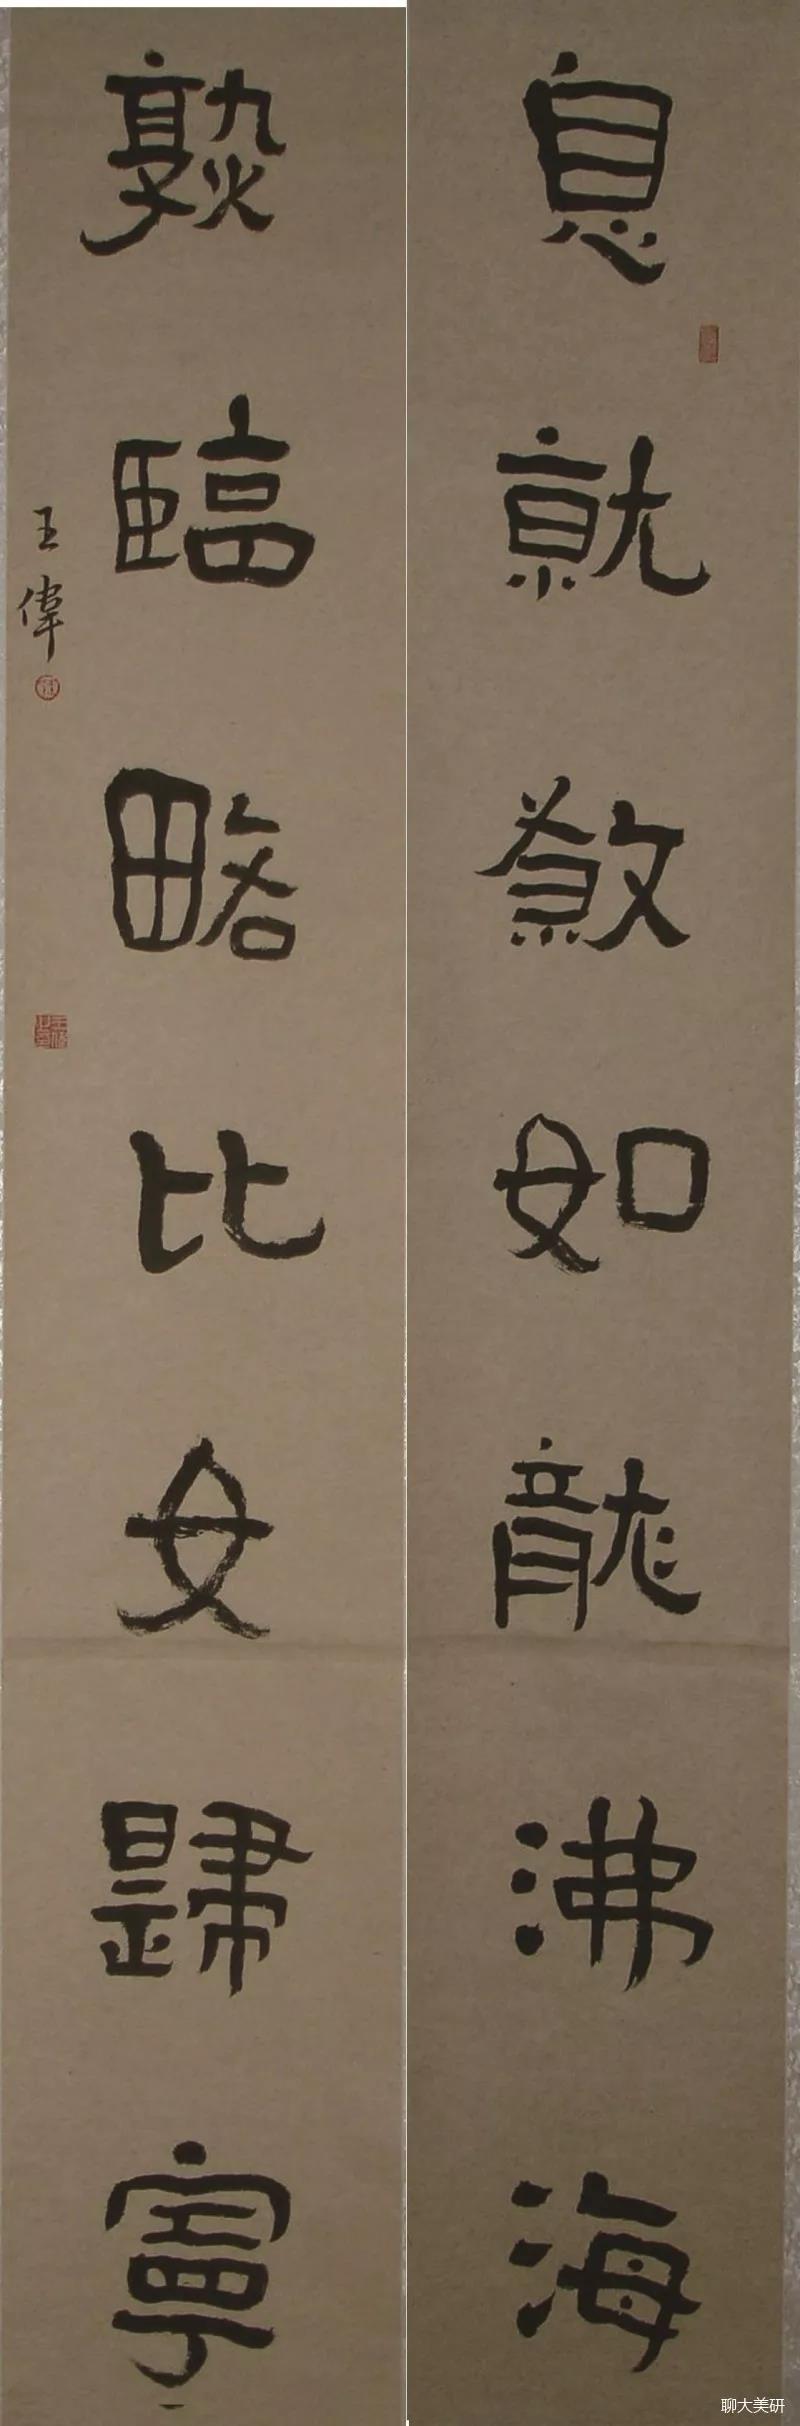 息就敛如龍沸海
熟臨略比女歸寧
王偉
聊大美研